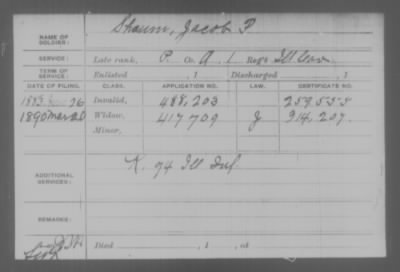 NAME OF SOLDIER: Shaum, Jacob P
SERVICE: Late rank, P. Co. A, 1 Reg't Ill Cav.
TERM OF SERVICE: Enlisted , 1 Discharged , 1
DATE OF FILING. CLASS. APPLICATION NO. LAW. CERTIFICATE NO.
1883 26 Invalid, 488,203 259,555
1890 Mar 20 Widow, 417709 J 314,207.
Minor,
ADDITIONAL SERVICES: K. 74 Ill Inf
REMARKS:
Died , 1 , at